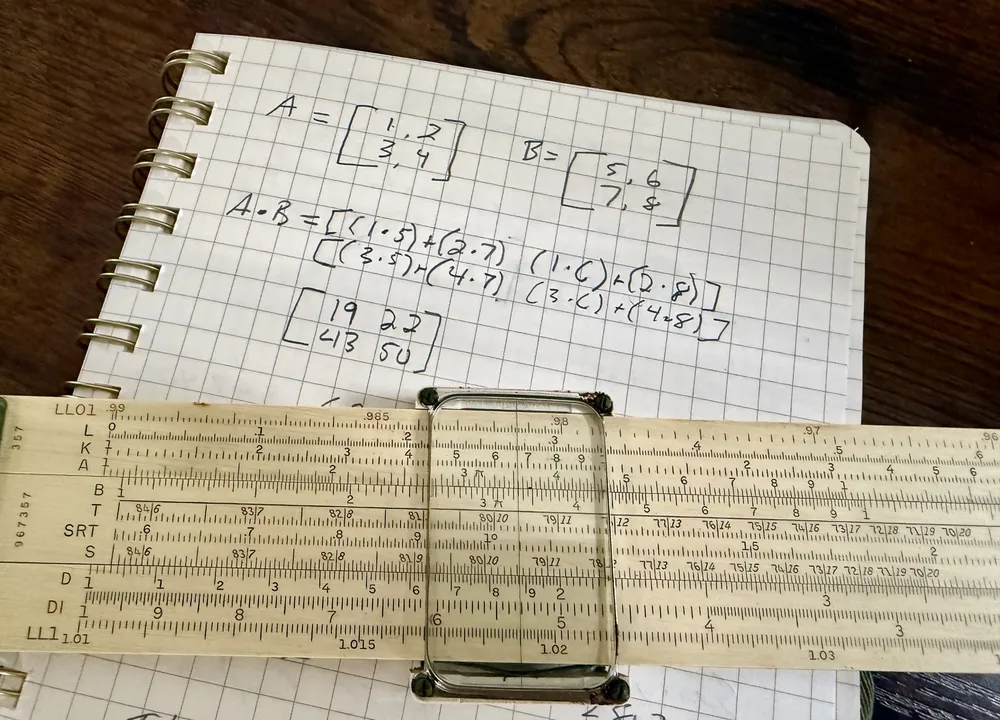 A = [1, 2 B = [5, 6
3, 4] 7, 8]
A•B = [(1•5)+(2•7) (1•6)+(2•8)]
[(3•5)+(4•7) (3•6)+(4•8)]
[19 22
43 50]
LL01 .99 .985 .98 .97 .96
L 0 .1 .2 .3 .4 .5 .6
K 1 2 3 4 5 6 7 8 9 1 2 3 4 5 6
A 1 2 3 π 4 5 6 7 8 9 1
B 1 2 3 π 4 5 6 7 8 9 1
T 84|6 83|7 82|8 81| 80|10 79|11 |12 77|13 76|14 75|15 74|16 73|17 72|18 71|19 70|20
SRT .6 .7 .8 .9 1° 1.5 2
S 84|6 83|7 82|8 81|9 80|10 79|11 78| 77|13 76|14 75|15 74|16 73|17 72|18 71|19 70|20
D 1 1 2 3 4 5 6 7 8 9 2 3
DI 1 9 8 7 6 5 4 3
LL1 1.01 1.015 1.02 1.03
357
967357